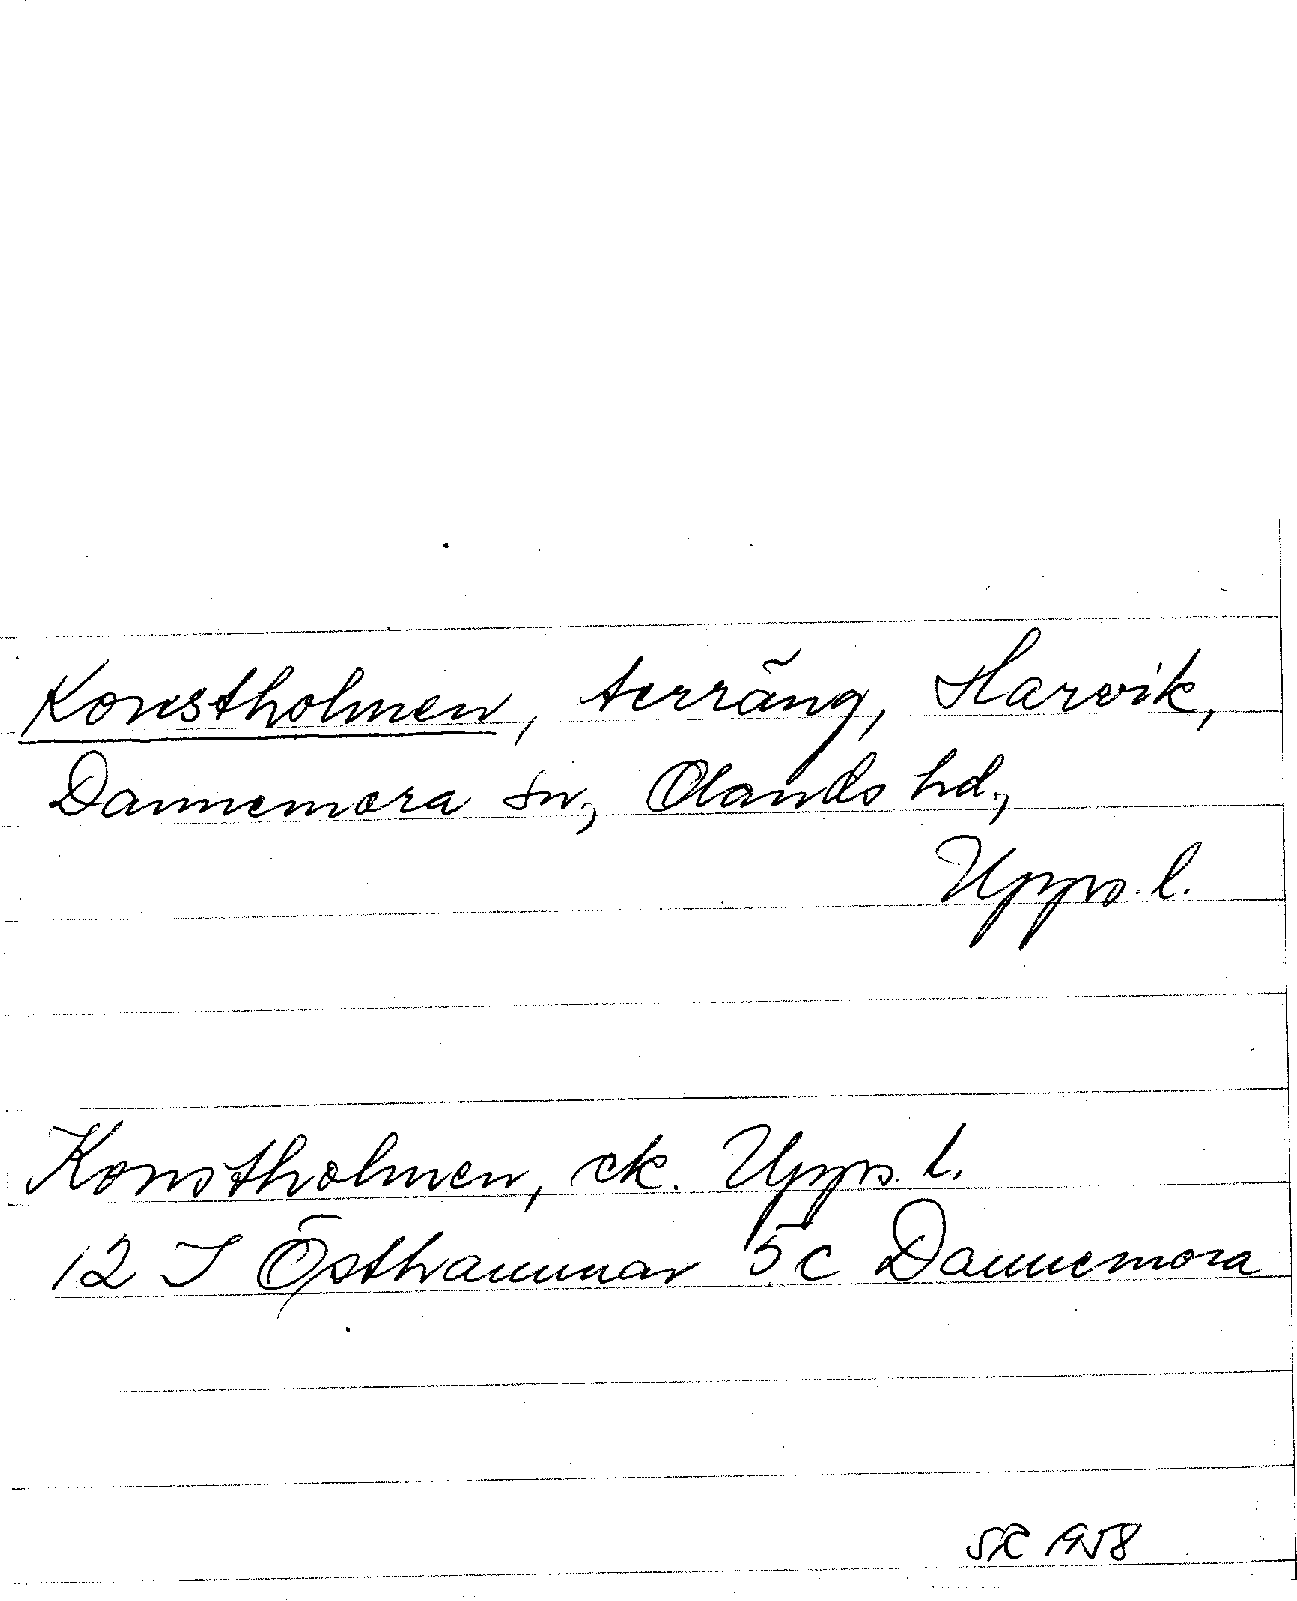 Konstholmen, terräng, Harvik,
Dannemora sn, Olands hd.,
Upps. l.
Konstholmen, ek. Upps. l.
12 I Östhammar 5c Dannemora
1958